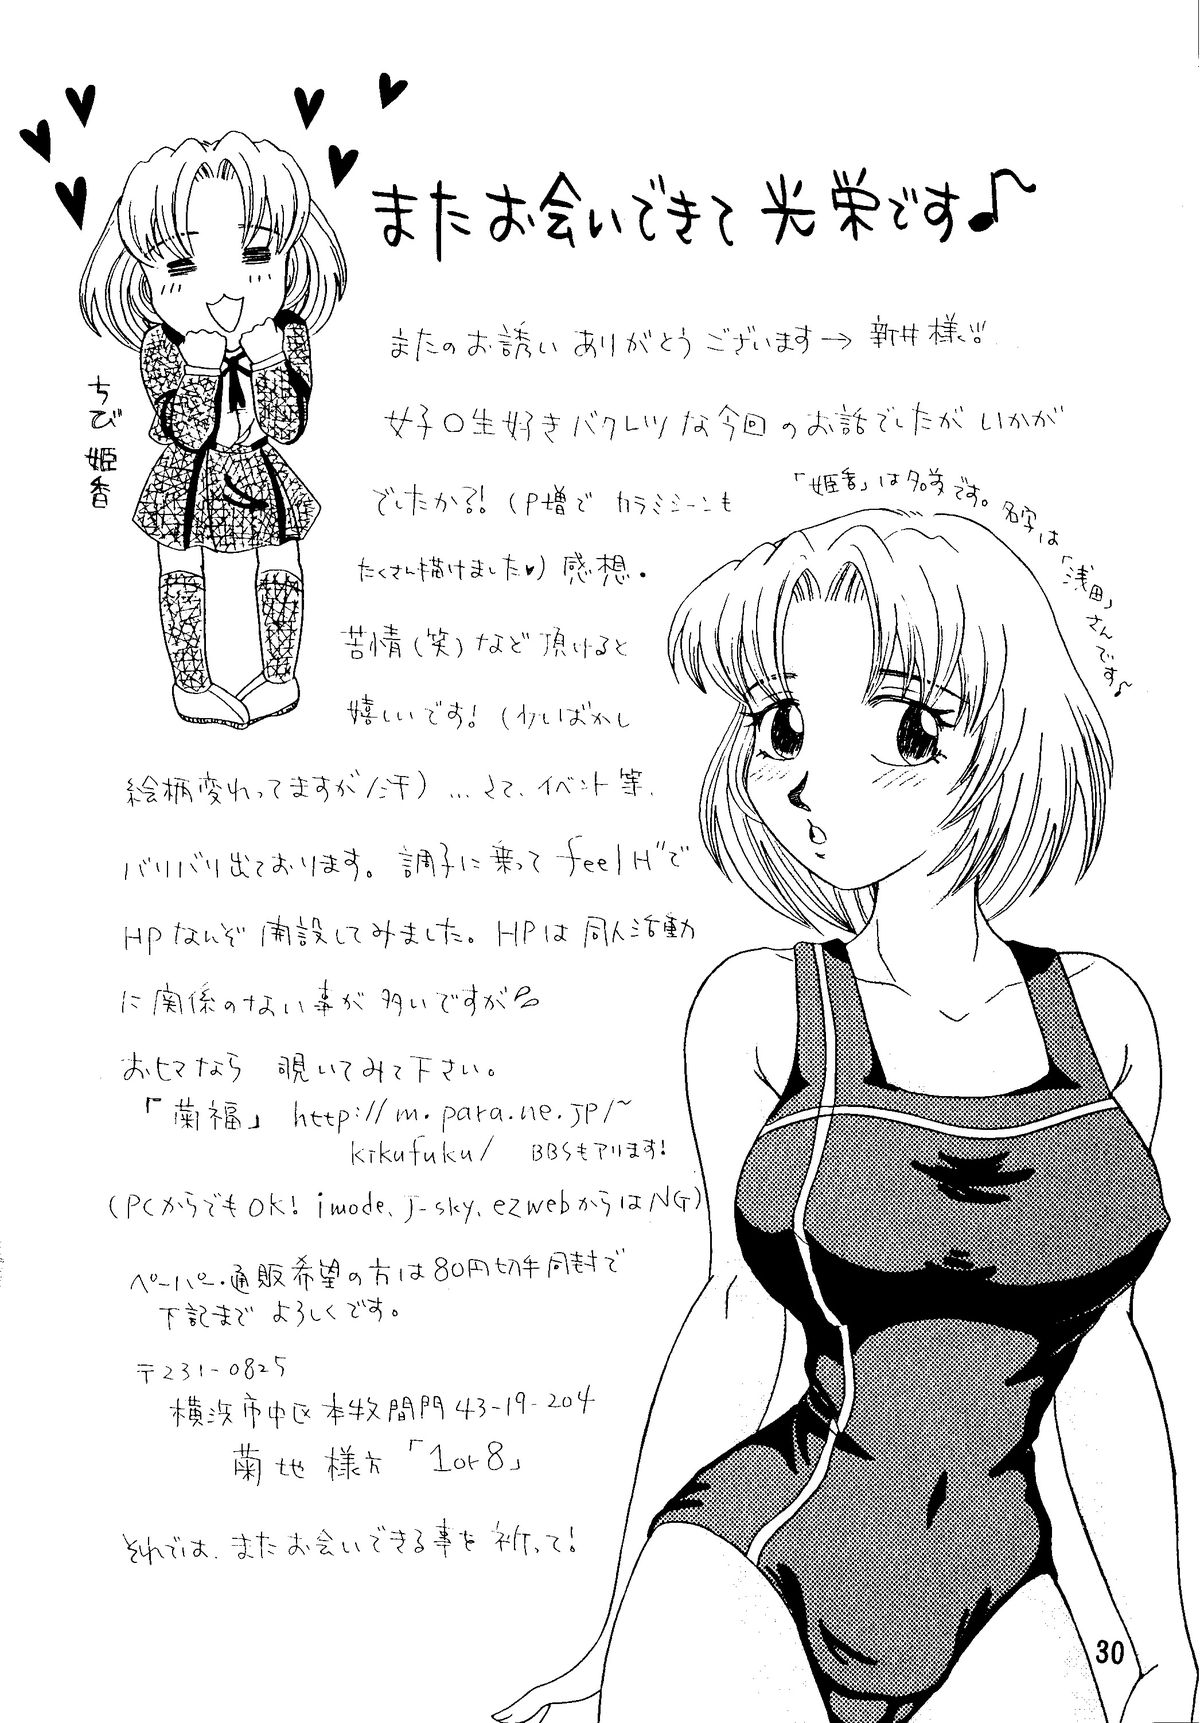 またお会いできて光栄です♪
またのお誘いありがとうございます→新井様!!
女子○生好きバクレツな今回のお話でしたがいかが
でしたか?!(P増でカラミシーンも
たくさん描けました♥)感想・
苦情(笑)など頂けると
嬉しいです!(少しばかし
絵柄変わってますが/汗)…さて、イベント等、
バリバリ出ております。調子に乗ってfeelH"で
HPなんぞ開設してみました。HPは同人活動
に関係のない事が多いですが
おヒマなら 覗いてみて下さい。
「菊福」 http://m.para.ne.jp/~
kikufuku/ BBSもアリます!
(PCからでもOK! imode、J-sky、ezwebからはNG)
ペーパー・通販希望の方は80円切手同封で
下記まで よろしくです。
〒231-0825
横浜市中区本牧間門43-19-204
菊地様方「1or8」
それでは、またお会いできる事を祈って!
ちび姫香
「姫香」は名前です。名字は
「浅田」さんです♪
30